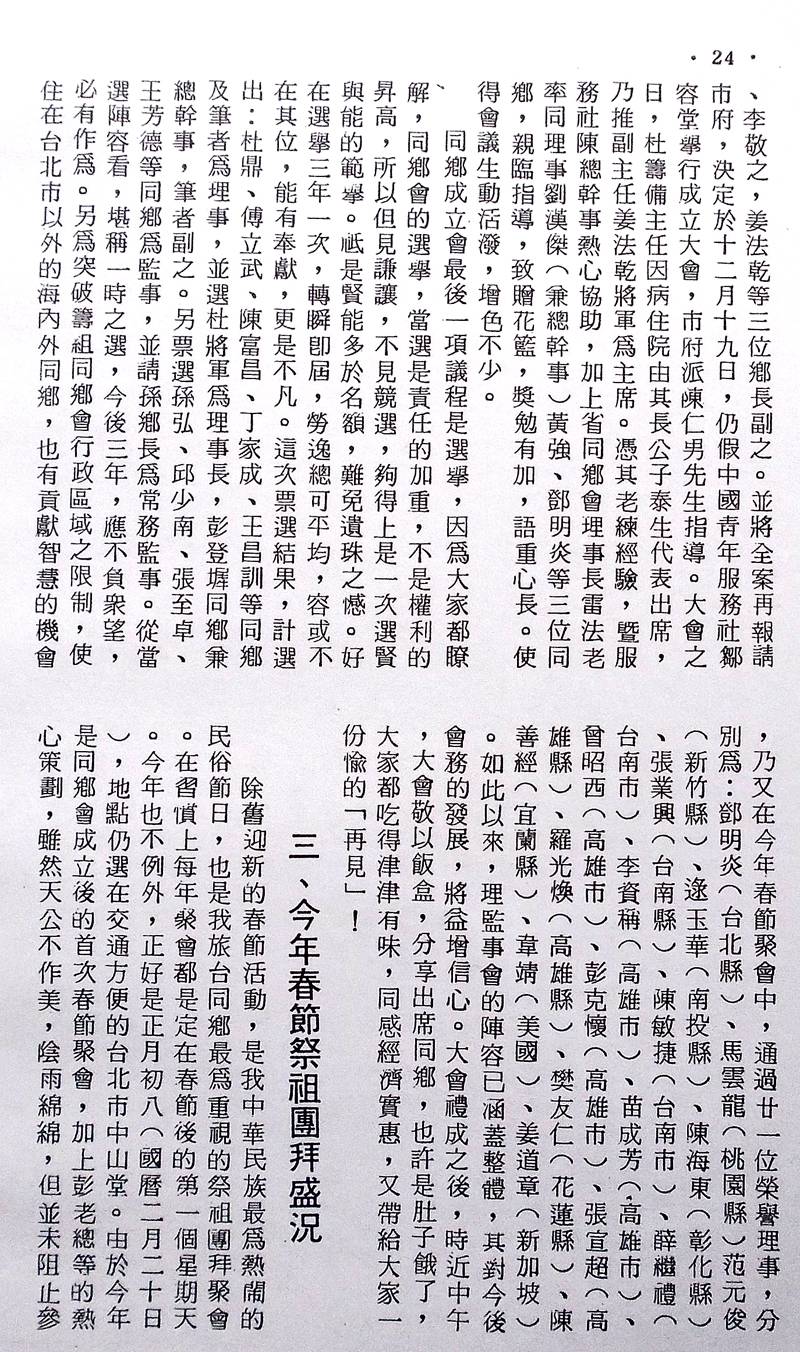 ·24·
、李敬之，姜法乾等三位鄉長副之。並將全案再報請
市府，決定於十二月十九日，仍假中國青年服務社鄒
容堂舉行成立大會，市府派陳仁男先生指導。大會之
日，杜籌備主任因病住院由其長公子泰生代表出席，
乃推副主任姜法乾將軍為主席。憑其老練經驗，暨服
務社陳總幹事熱心協助，加上省同鄉會理事長雷法老
率同理事劉漢傑（兼總幹事）黃強、鄧明炎等三位同
鄉，親臨指導，致贈花籃，獎勉有加，語重心長。使
得會議生動活潑，增色不少。
同鄉成立會最後一項議程是選舉，因為大家都瞭
解，同鄉會的選舉，當選是責任的加重，不是權利的
昇高，所以但見謙讓，不見競選，夠得上是一次選賢
與能的範舉。祇是賢能多於名額，難免遺珠之憾。好
在選舉三年一次，轉瞬卽屆，勞逸總可平均，容或不
在其位，能有奉獻，更是不凡。這次票選結果，計選
出：杜鼎、傅立武、陳富昌、丁家成、王昌訓等同鄉
及筆者為理事，並選杜將軍為理事長，彭登墀同鄉兼
總幹事，筆者副之。另票選孫弘、邱少南、張至卓、
王芳德等同鄉為監事，並請孫鄉長為常務監事。從當
選陣容看，堪稱一時之選，今後三年，應不負眾望，
必有作為。另為突破籌組同鄉會行政區域之限制，使
住在台北市以外的海內外同鄉，也有貢獻智慧的機會
，乃又在今年春節聚會中，通過廿一位榮譽理事，分
別為：鄧明炎（台北縣）、馬雲龍（桃園縣）范元俊
（新竹縣）、逯玉華（南投縣）、陳海東（彰化縣）
、張業興（台南縣）、陳敏捷（台南市）、薛繼禮（
台南市）、李資稱（高雄市）、苗成芳（高雄市）、
曾昭西（高雄市）、彭克懷（高雄市）、張宜超（高
雄縣）、羅光煥（高雄縣）、樊友仁（花蓮縣）、陳
善經（宜蘭縣）、韋靖（美國）、姜道章（新加坡）
。如此以來，理監事會的陣容已涵蓋整體，其對今後
會務的發展，將益增信心。大會禮成之後，時近中午
，大會敬以飯盒，分享出席同鄉，也許是肚子餓了，
大家都吃得津津有味，同感經濟實惠，又帶給大家一
份愉的「再見」！
三、今年春節祭祖團拜盛況
除舊迎新的春節活動，是我中華民族最為熱鬧的
民俗節日，也是我旅台同鄉最為重視的祭祖團拜聚會
。在習慣上每年聚會都是定在春節後的第一個星期天
。今年也不例外，正好是正月初八（國曆二月二十日
），地點仍選在交通方便的台北市中山堂。由於今年
是同鄉會成立後的首次春節聚會，加上彭老總等的熱
心策劃，雖然天公不作美，陰雨綿綿，但並未阻止參